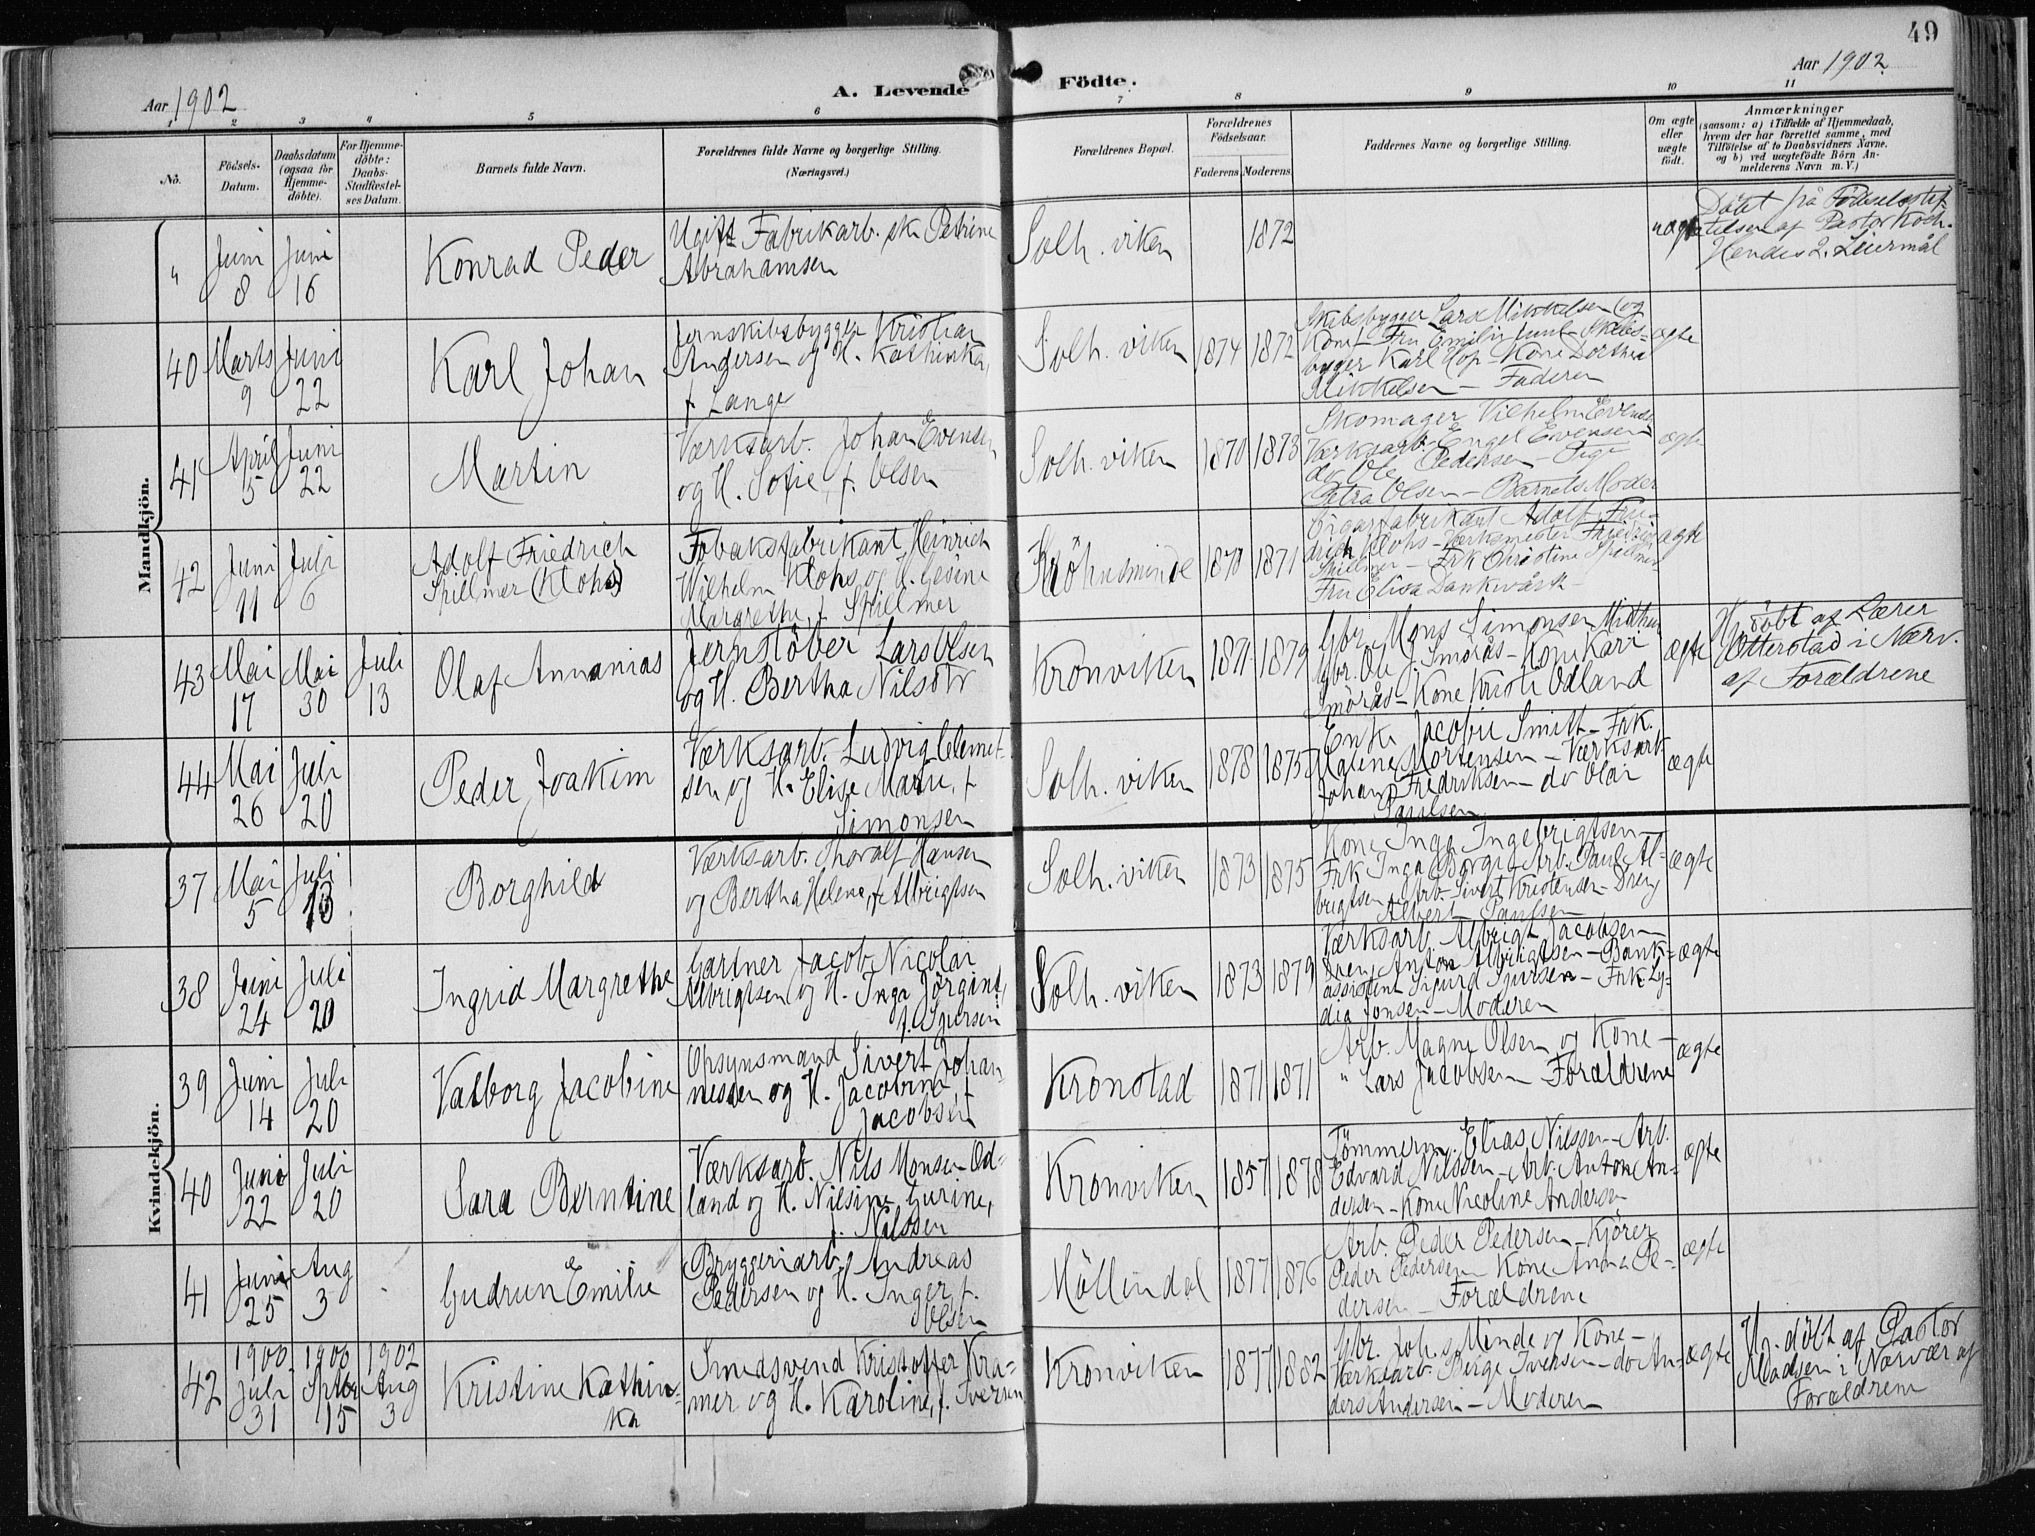 49
Aar 1902
A. Levende
Födte.
Aar 1902
1 2 3 4 5 6 7 8 9 10 11
No.
Födsels-
Datum.
Daabsdatum
(ogsaa for
Hjemme-
döbte).
For Hjemme-
döbte:
Daabs-
Stadfæstel-
ses Datum.
Barnets fulde Navn.
Forældrenes fulde Navne og borgerlige Stilling.
(Næringsvei.)
Forældrenes Bopæl.
Forældrenes
Födselsaar.
Faderens Moderens
Faddernes Navne og borgerlige Stilling.
Om ægte
eller
uægte
födt.
Anmærkninger
(saasom: a) i Tilfælde af Hjemmedaab,
hvem der har forrettet samme, med
Tilföielse af to Daabsvidners Navne,
og b) ved uægtefödte Börn An-
melderens Navn m. V.)
Mandkjön.
" Juni 8
Juni 16
Konrad Peder
Ugift Fabrikarb.sk. Petrine
Abrahamsen
Solh. viken
1872
uægte
Döbt på Födselsstif-
telsen af Pastor Koch.
Hendes 2. Leiermål
40 Marts 9
Juni 22
Karl Johan
Jernskibsbygger Kristian
Andersen og H. Kathinka,
f. Lange
Solh. viken
1874 1872
Skibsbygger Lars Mikkelsen (og
Kone) - Fru Emilie Juul - Skibs-
bygger Karl Hop - Kone Dorthea
Mikkelsen - Faderen
ægte
41 April 5
Juni 22
Martin
Værksarb. Johan Evensen
og H. Sofie, f. Olsen
Solh. viken
1870 1873
Skomager Vilhelm Evensen
Værksarb. Engel Evensen
do Ole Pedersen - Pige
Petra Olsen - Barnets Moder
ægte
42 Juni 11
Juli 6
Adolf Friedrich
Spillmer (Klohs)
Tobaksfabrikant Heinrich
Wilhelm Klohs og H. Gesine
Margrethe f. Spillmer
Kröhnsminde
1870 1871
Cigarfabrikant Adolf Frie-
drich Klohs - Værksmester Friedrich
Spillmer - Frk Christine Spillmer
Fru Elisa Dankwart
ægte
43 Mai 17
Mai 30
Juli 13
Olaf Annanias
Jernstöber Lars Olsen
og H. Bertha Nilsdtr
Kronviken
1871 1879
Gbr. Mons Simonsen Midthun
Gbr. Ole J. Smörås - Kone Kari
Smörås - Kone Kristi Odland
ægte
Hj. döbt af Lærer
Otterstad i Nærv.
af Forældrene
44 Mai 26
Juli 20
Peder Joakim
Værksarb. Ludvig Clemet-
sen og H. Elise Marie, f.
Simonsen
Solh. viken
1878 1875
Enke Jacobie Smitt - Frk.
Malene Mortensen - Værksarb.
Johan Fredriksen - do Olai
Paulsen
ægte
Kvindekjön.
37 Mai 5
Juli 13
Borghild
Værksarb. Thoralf Hansen
og Bertha Helene, f. Albrigtsen
Solh. viken
1873 1875
Kone Inga Ingebrigtsen -
Frk Inga Borge - Arb. Paul Al-
brigtsen - Arb. Sivert Kristensen - Dreng
Albert Paulsen
ægte
38 Juni 24
Juli 20
Ingrid Margrethe
Gartner Jacob Nicolai
Albrigtsen og H. Inga Jörgine,
f. Sjursen
Solh. viken
1873 1879
Værksarb. Albrigt Jacobsen -
Dreng Anton Albrigtsen - Bank-
assistent Sigurd Sjursen - Frk Ly-
dia Jonsen - Moderen
ægte
39 Juni 14
Juli 20
Valborg Jacobine
Opsynsmand Sivert Johan-
nessen og H. Jacobine f.
Jacobsen
Kronstad
1871 1871
Arb. Magne Olsen og Kone -
" Lars Jacobsen - Forældrene
ægte
40 Juni 22
Juli 20
Sara Berntine
Værksarb. Nils Monsen Od-
land og H. Nilsine Gurine,
f. Nilssen
Kronviken
1857 1878
Tömmerm. Elias Nilssen - Arb.
Edvard Nilssen - Arb. Anton An-
dersen - Kone Nicoline Andersen
ægte
41 Juni 25
Aug 3
Gudrun Emilie
Bryggeriarb. Andreas
Pedersen og H. Inger f.
Olsen
Möllendal
1877 1876
Arb. Peder Pedersen - Kjörer
Peder Pedersen - Kone Anna Pe-
dersen - Forældrene
ægte
42 1900 Juli 31
1900 Sptbr 15
1902 Aug 3
Kristine Kathin-
ka
Smedsvend Kristoffer Kra-
mer og H. Karoline, f. Iversen
Kronviken
1877 1882
Gbr. Johs Minde og Kone -
Værksarb. Birge Iversen - do An-
ders Andersen - Moderen
ægte
Hj. döbt af Pastor
Madsen i Nærvær af
Forældrene